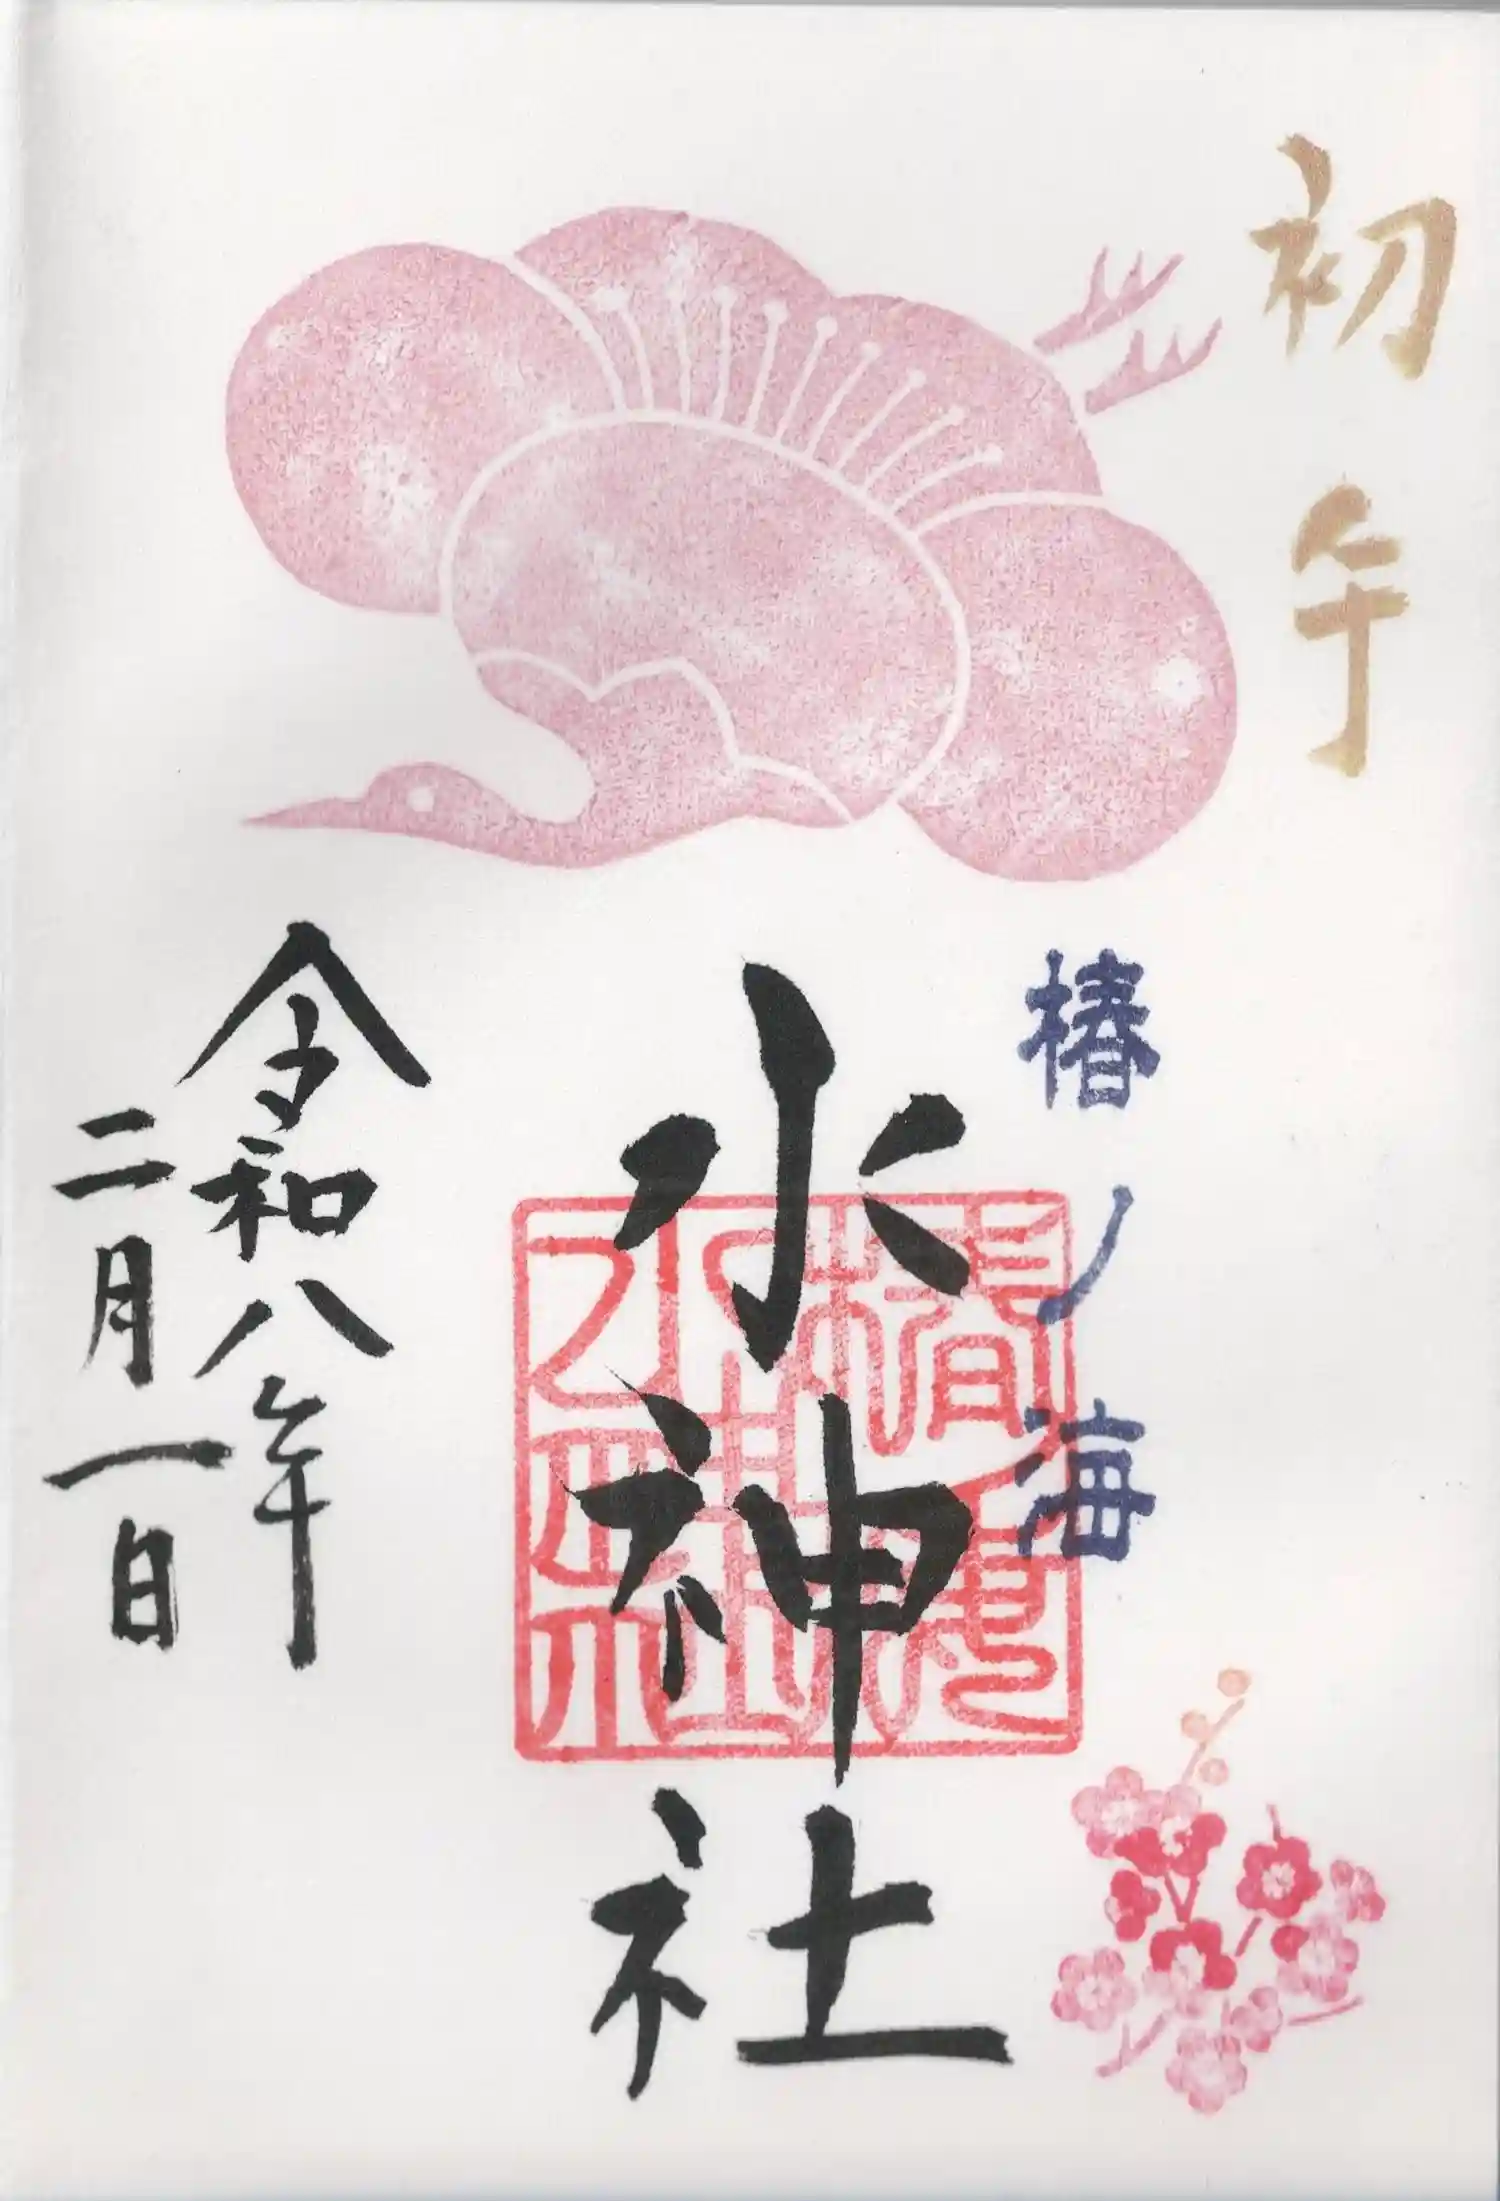 初午
椿ノ海
水神社
令和八年
二月一日